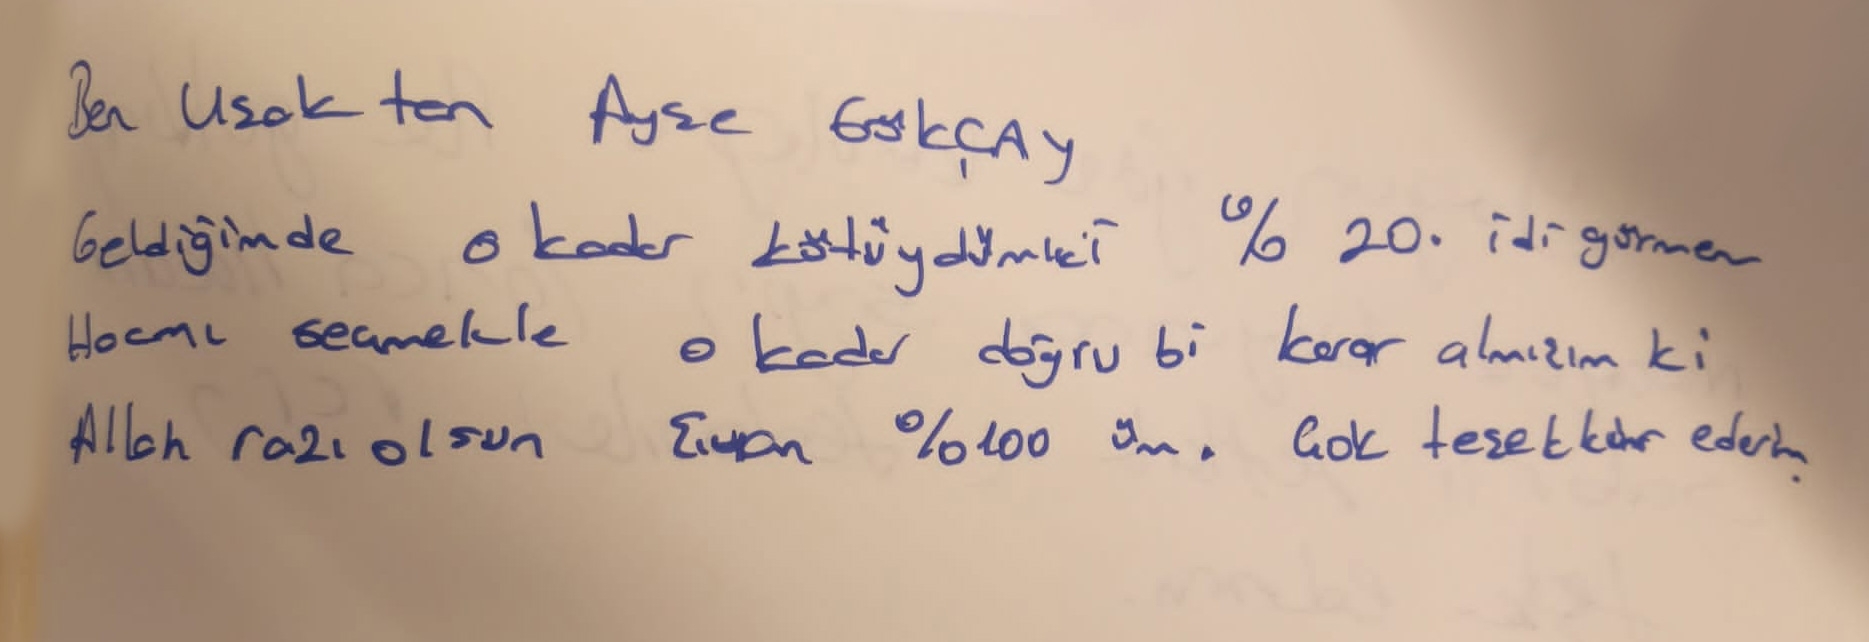 Ben Usak ten Ayse GökÇAy
Geldiğimde o kadar kötüydümki % 20. idi görmem
Hocmı secmekle o kadar doğru bi karar almızım ki
Allah razı olsun %100 üm. Cok tesekkür ederim.